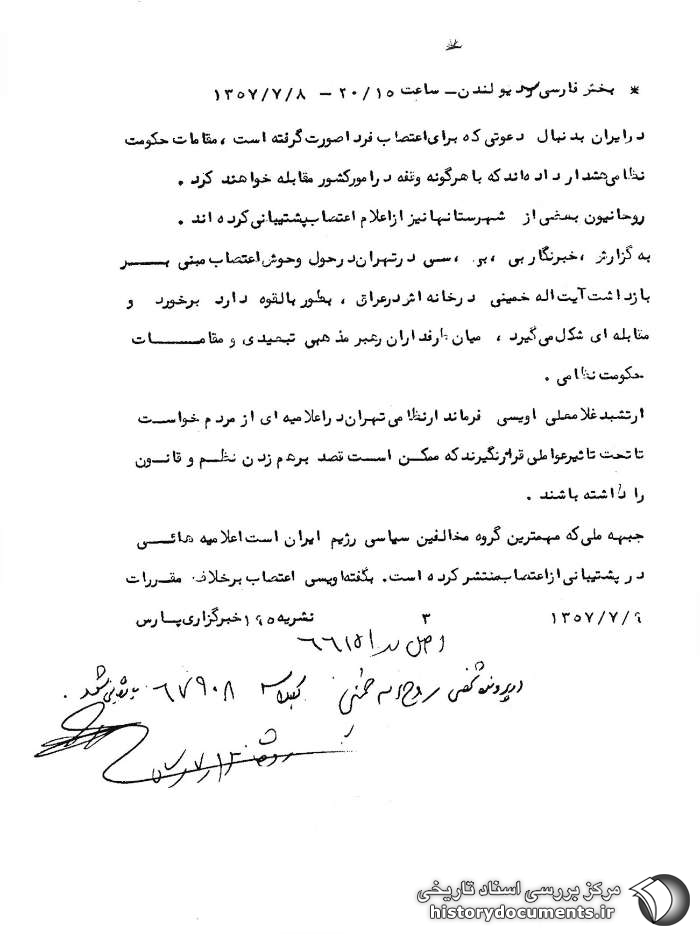 * بخش فارسی رادیو لندن - ساعت ۲۰/۱۵ - ۱۳۵۷/۷/۸
در ایران بدنبال دعوتی که برای اعتصاب فردا صورت گرفته است ، مقامات حکومت
نظامی هشدار داده اند که با هرگونه وقفه در امور کشور مقابله خواهند کرد .
روحانیون بعضی از شهرستانها نیز از اعلام اعتصاب پشتیبانی کرده اند .
به گزارش ، خبرنگار بی ، بی ، سی در تهران در حول و حوش اعتصاب مبنی بر
بازداشت آیت اله خمینی در خانه اش در عراق ، بطور بالقوه دارد برخورد و
مقابله ای شکل می گیرد ، میان طرفداران رهبر مذهبی تبعیدی و مقامات
حکومت نظامی .
ارتشبد غلامعلی اویسی فرماندار نظامی تهران در اعلامیه ای از مردم خواست
تا تحت تاثیر عواملی قرار نگیرند که ممکن است قصد برهم زدن نظم و قانون
را داشته باشند .
جبهه ملی که مهمترین گروه مخالفین سیاسی رژیم ایران است اعلامیه هائی
در پشتیبانی از اعتصاب منتشر کرده است . بگفته اویسی اعتصاب برخلاف مقررات
۱۳۵۷/۷/۹ ۳ نشریه ۱۹۵ خبرگزاری پارس
اصل در ۶۶۱۵۱
در پرونده شخصی روح اله خمینی کلاسه ۶۷۹۰۸ بایگانی شد .
مرکز بررسی اسناد تاریخی
historydocuments.ir